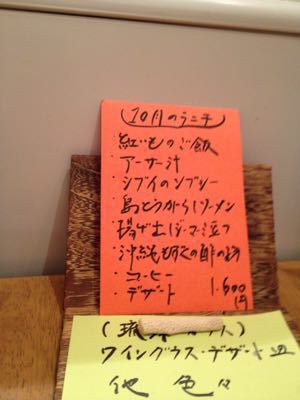 (10月のランチ)
・紅いものご飯
・アーサー汁
・シブイのンブシー
・島とうがらしソーメン
・揚ゲ出し
・沖縄もずくの酢の物
・コーヒー
・デザート 1.600円
(琉球
ワイングラス・デザート皿
他 色々